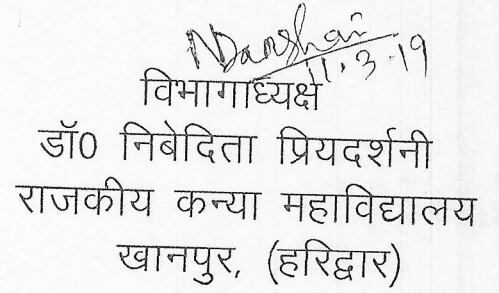 11.3.19
विभागाध्यक्ष
डॉ0 निबेदिता प्रियदर्शनी
राजकीय कन्या महाविद्यालय
खानपुर, (हरिद्वार)